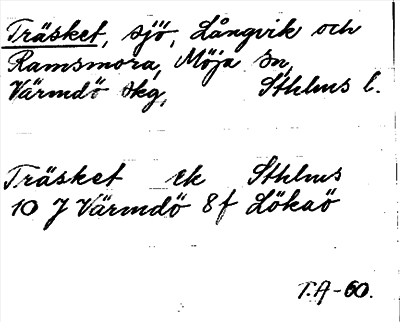 Träsket, sjö, Långvik och
Ramsmora, Möja sn,
Värmdö skg, Sthlms l.
Träsket ek Sthlms
10 J Värmdö 8f Lökaö
T.A-60.